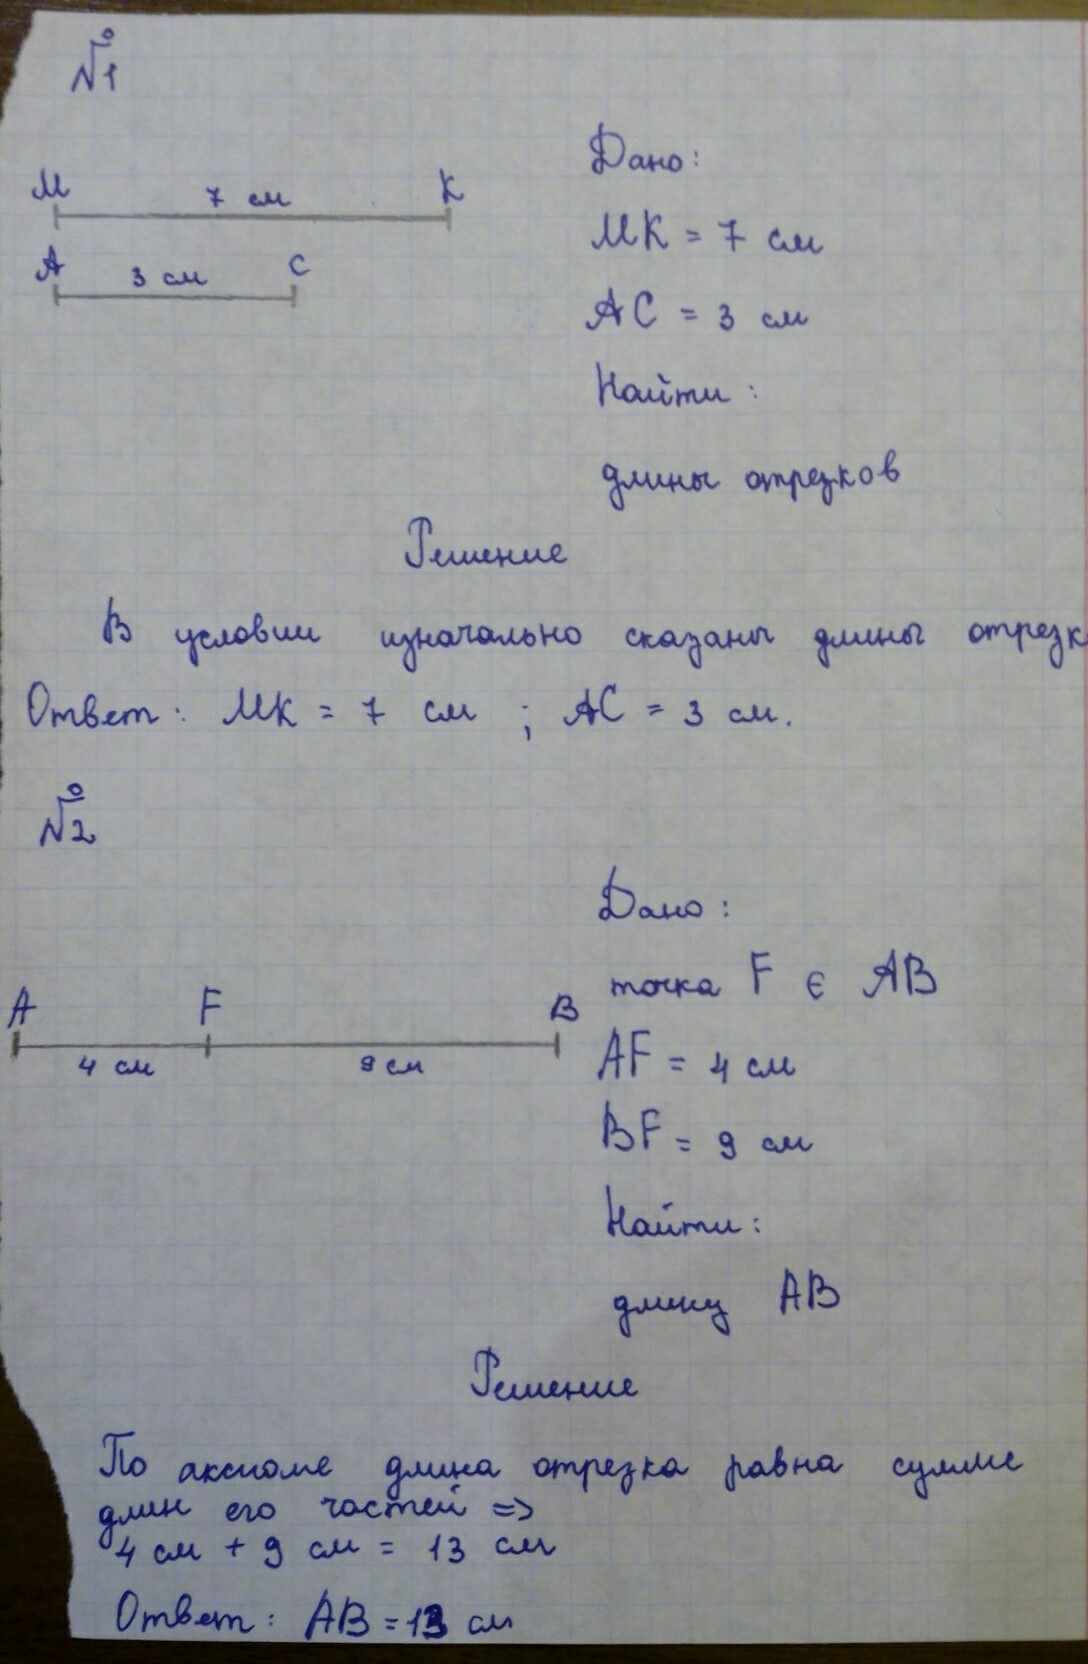 №1
Дано:
М 7 см К
МК = 7 см
А 3 см С
АС = 3 см
Найти:
длины отрезков
Решение
В условии изначально сказаны длины отрезк
Ответ: МК = 7 см ; АС = 3 см.
№2
Дано:
точка F ∈ АВ
A F B
4 см 9 см
AF = 4 см
BF = 9 см
Найти:
длину АВ
Решение
По аксиоме длина отрезка равна сумме
длин его частей =>
4 см + 9 см = 13 см
Ответ: АВ = 13 см